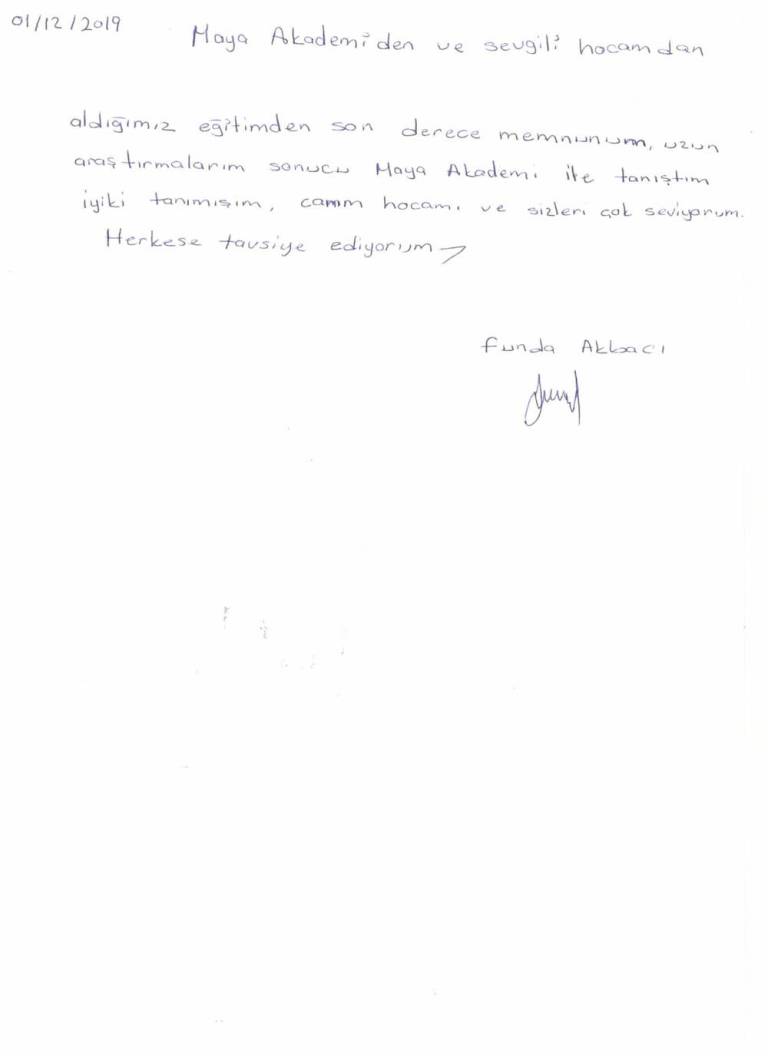 01/12/2019 Maya Akademi'den ve sevgili hocamdan
aldığımız eğitimden son derece memnunum, uzun
araştırmalarım sonucu Maya Akademi ile tanıştım
iyiki tanımışım, canım hocamı ve sizleri çok seviyorum.
Herkese tavsiye ediyorum
Funda Akbacı